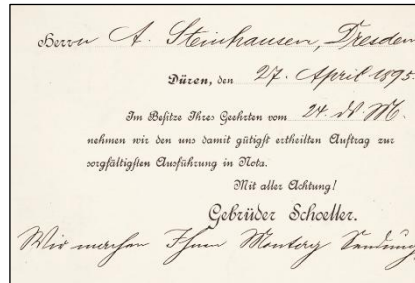 Herrn A. Steinhausen, Dresden
Düren, den 27. April 1895.
Im Besitze Ihres Geehrten vom 24. ds. M.
nehmen wir den uns damit gütigst ertheilten Auftrag zur
sorgfältigsten Ausführung in Nota.
Mit aller Achtung!
Gebrüder Schoeller.
Wir machen Ihnen Montag Sendung